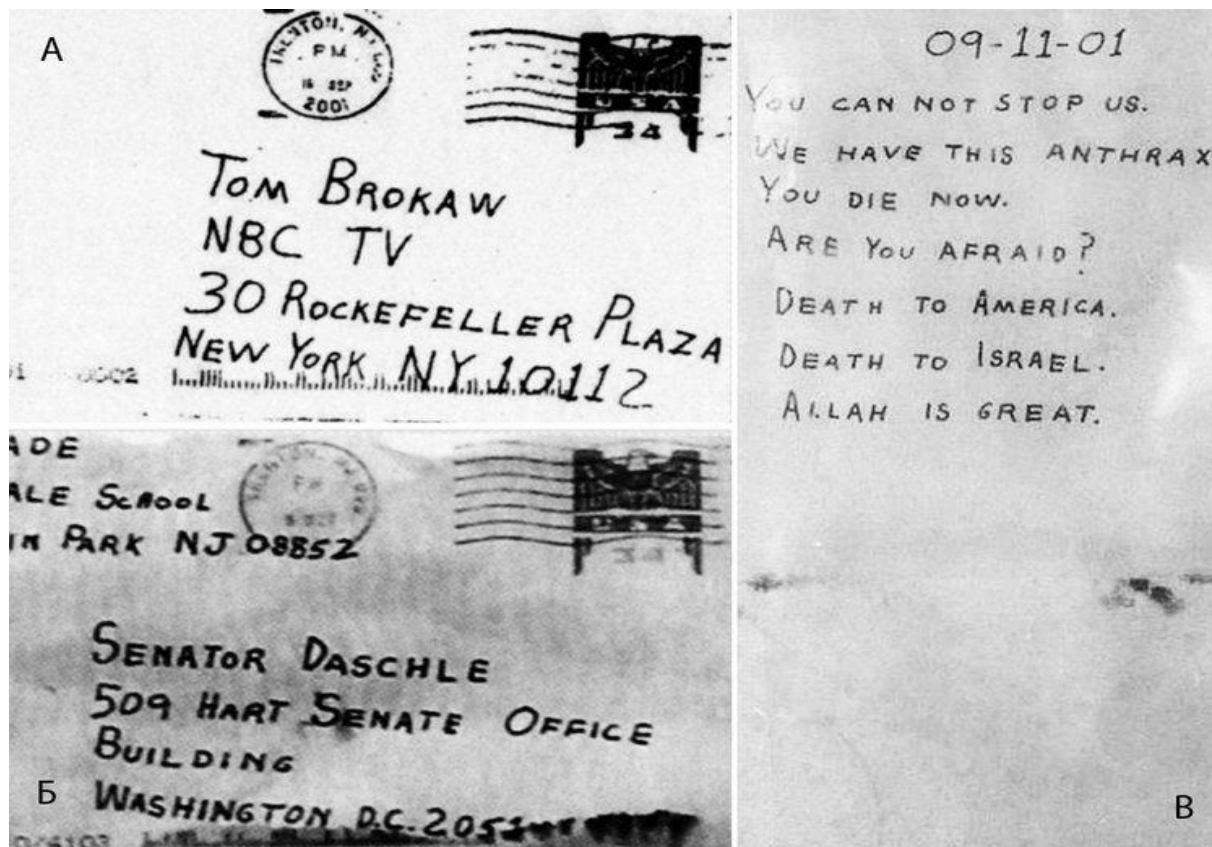 А
TRENTON, NJ
PM
18 SEP
2001
USA
34
TOM BROKAW
NBC TV
30 ROCKEFELLER PLAZA
NEW YORK NY 10112
ADE
ALE SCHOOL
IN PARK NJ 08852
PM
USA
34
SENATOR DASCHLE
509 HART SENATE OFFICE
BUILDING
WASHINGTON D.C. 205
Б
09-11-01
YOU CAN NOT STOP US.
WE HAVE THIS ANTHRAX
YOU DIE NOW.
ARE YOU AFRAID?
DEATH TO AMERICA.
DEATH TO ISRAEL.
ALLAH IS GREAT.
В